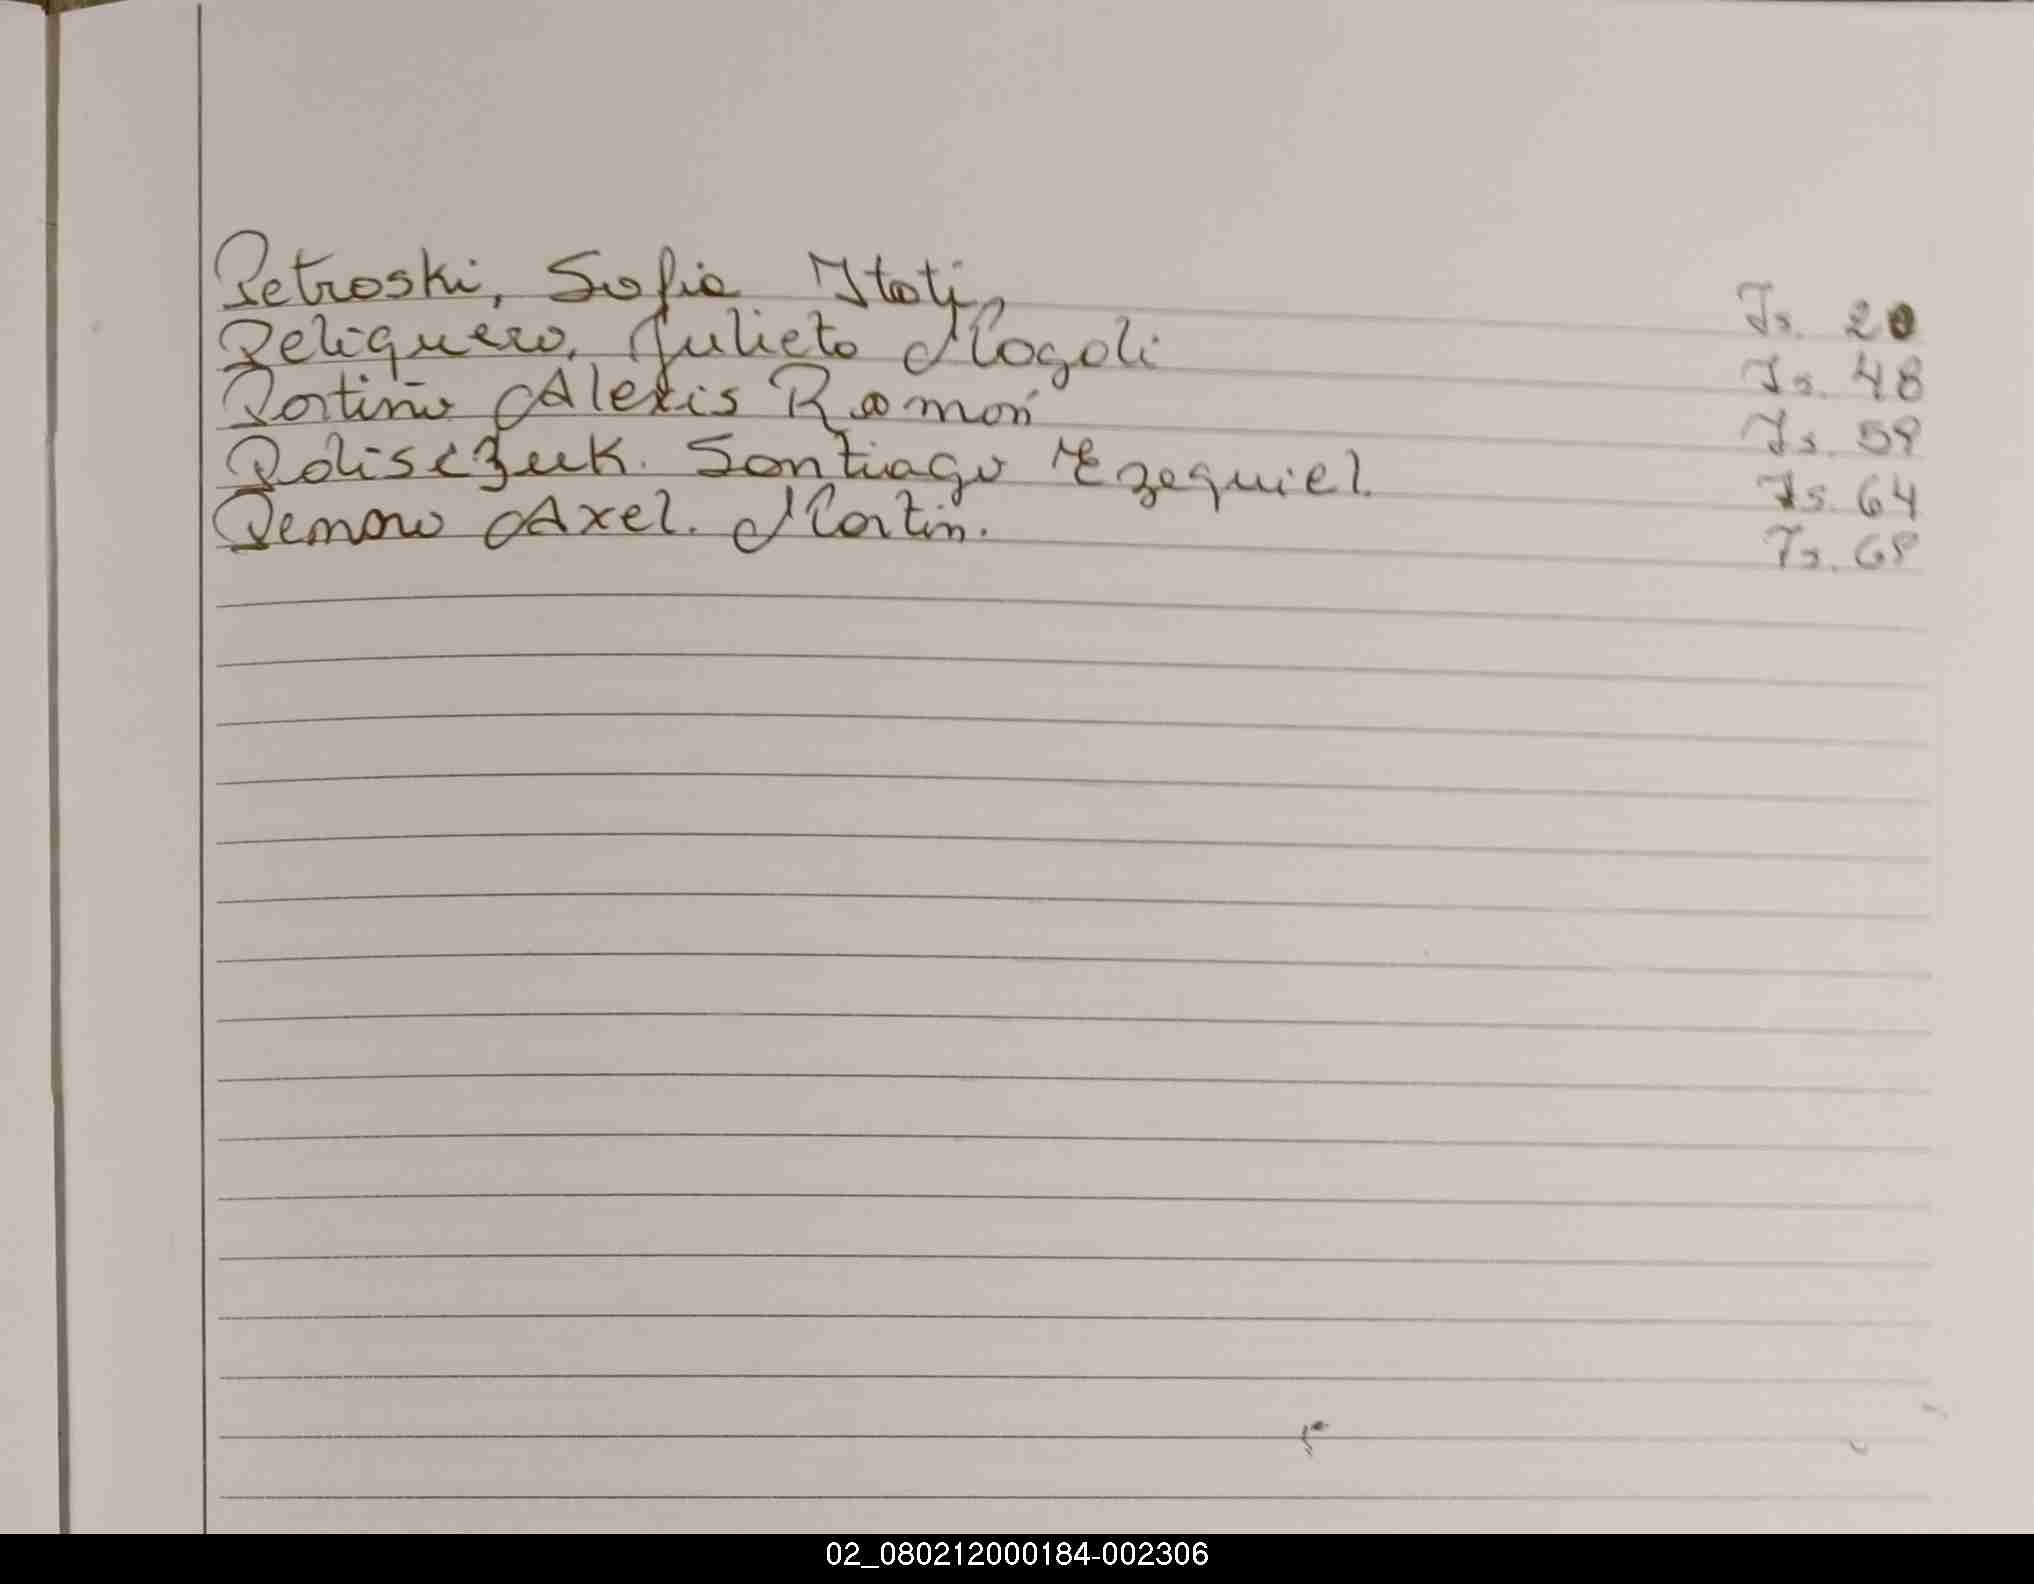 Petroski, Sofia Itati Fs. 20
Peliquero, Julieta Magali Fs. 48
Portiño Alexis Ramón Fs. 59
Polisczuk. Santiago Ezequiel. Fs. 64
Axel. Martin. Fs. 68
02_080212000184-002306